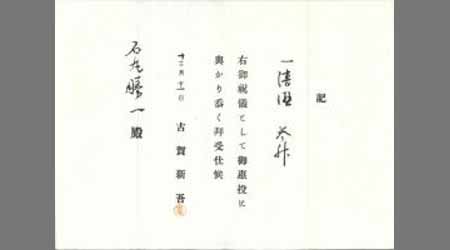 記
一清酒 壱升
右御祝儀として御恵投に
與かり忝く拝受仕候
十二月十一日
古賀新吾
石丸勝一殿